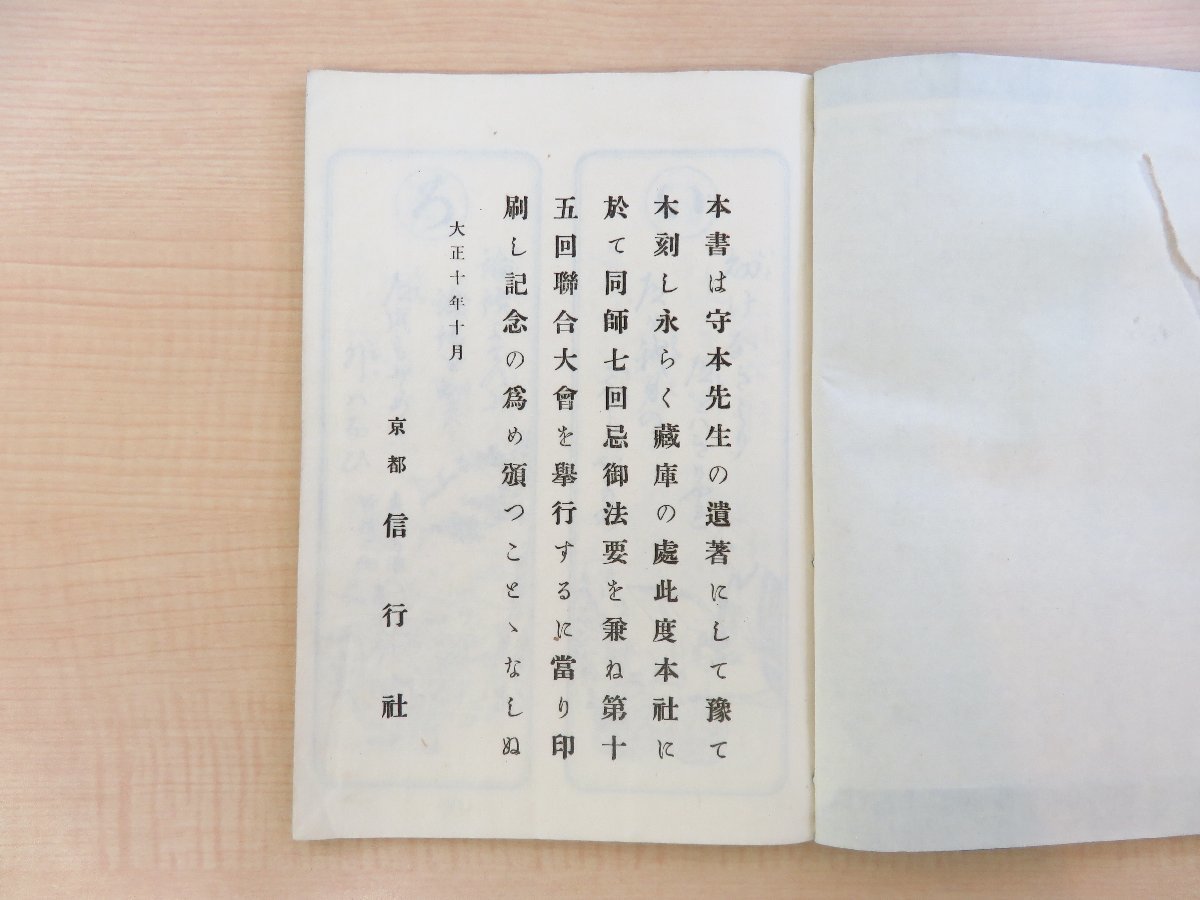 本書は守本先生の遺著にして豫て
木刻し永らく藏庫の處此度本社に
於て同師七回忌御法要を兼ね第十
五回聯合大會を擧行するに當り印
刷し記念の爲め頒つことゝなしぬ
大正十年十月
京都 信行社